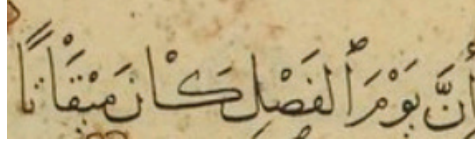 إِنَّ يَوْمَ ٱلفَصْلِ كَانَ مِيْقَاتًا